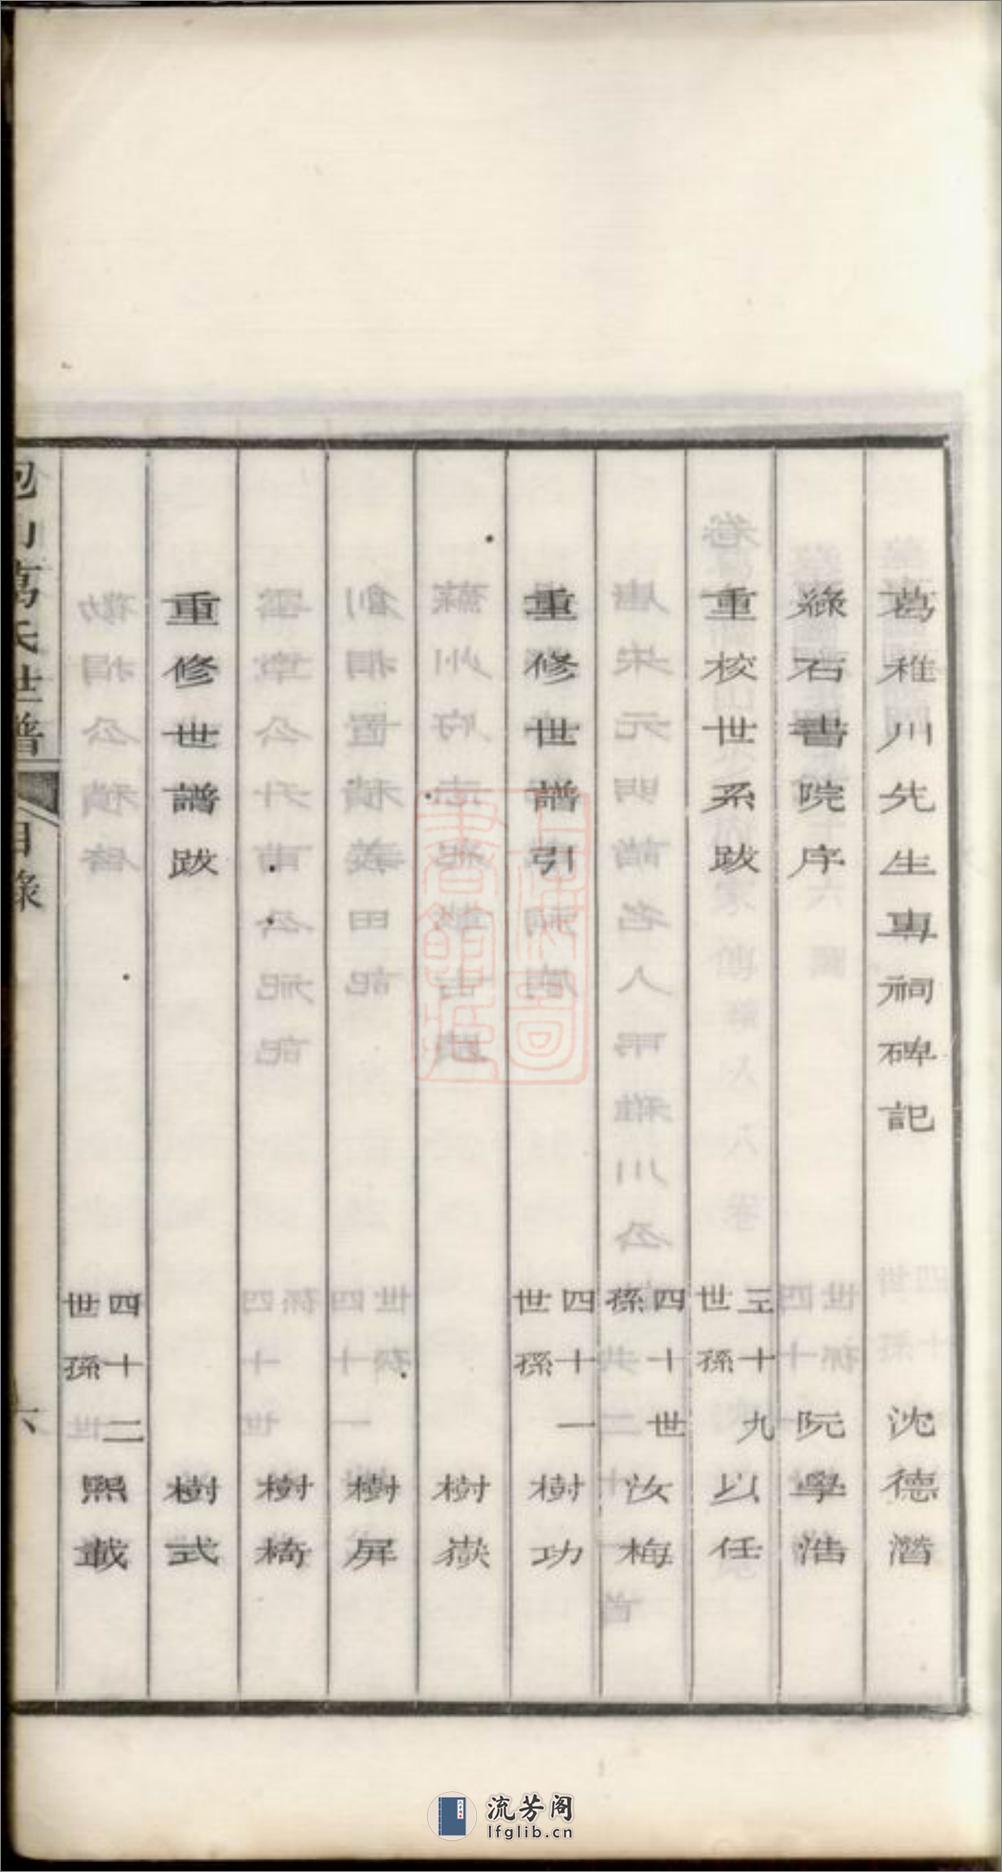 葛稚川先生專祠碑記 沈德潛
綠石書院序 阮學浩
重校世系跋 三十九世孫以任
四十世孫汝梅
重修世譜引 四十一世孫樹功
樹嶽
樹屏
樹椅
重修世譜跋 樹式
四十二世孫熙載
包山葛氏世譜 目錄 六
上海圖書館藏
流芳阁
lfglib.cn